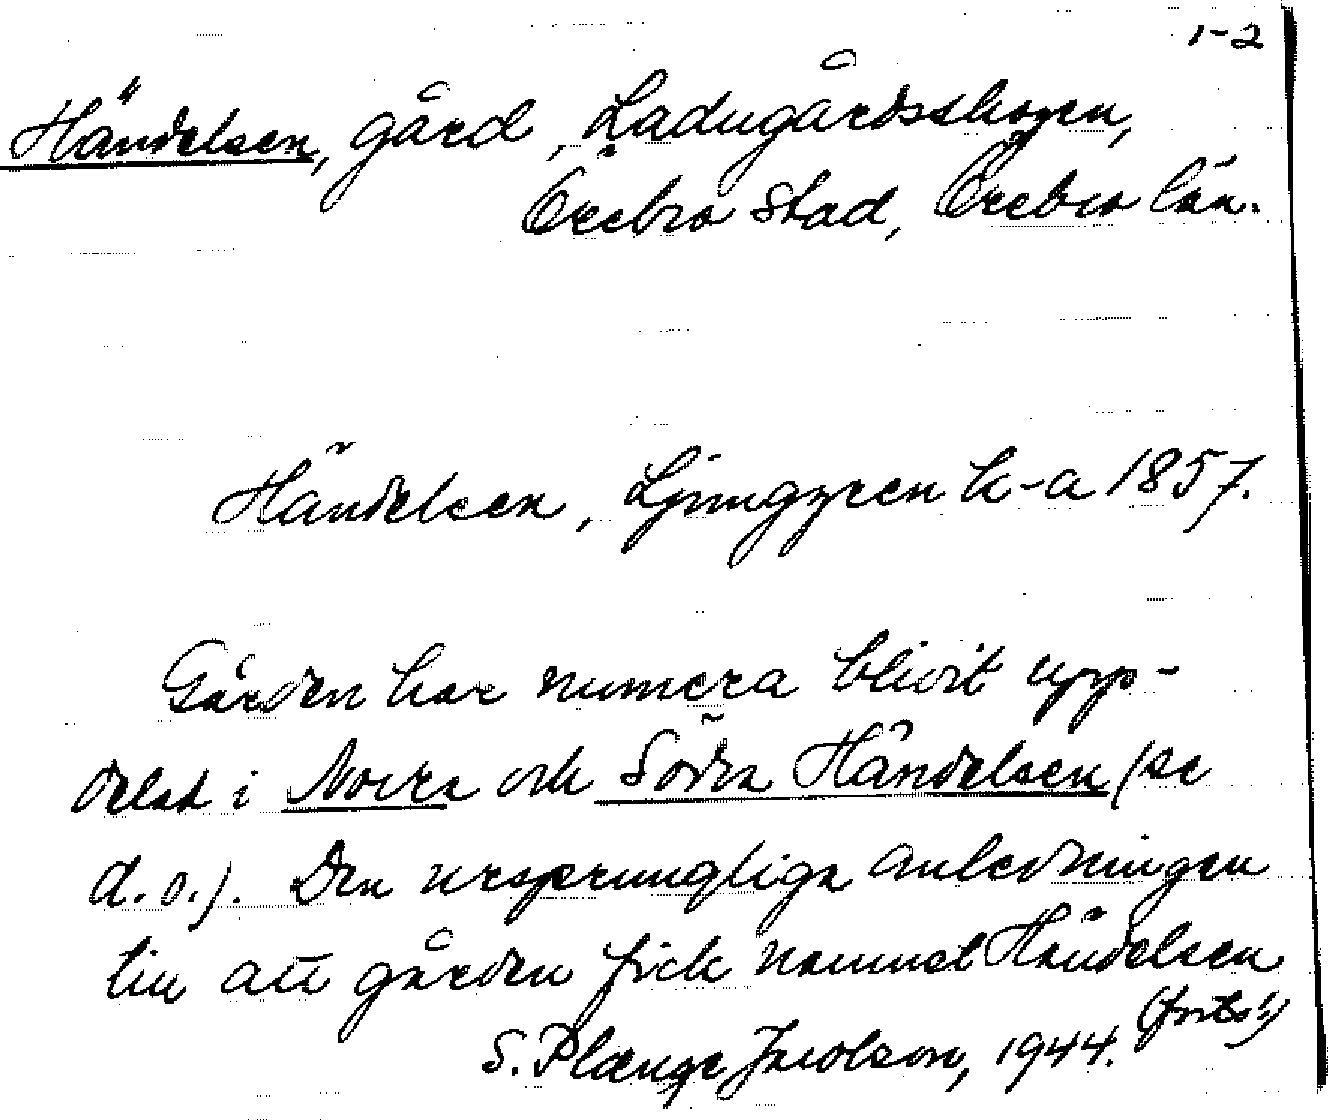 1-2
Händelsen, gård, Ladugårdsskogen,
Örebro stad, Örebro län.
Händelsen, Ljunggren h-a 1857.
Gården har numera blivit upp-
delat i Norra och Södra Händelsen (se
d.o.). Den ursprungliga anledningen
till att gården fick namnet Händelsen
(forts.)
S. Plænge Jacobson, 1944.